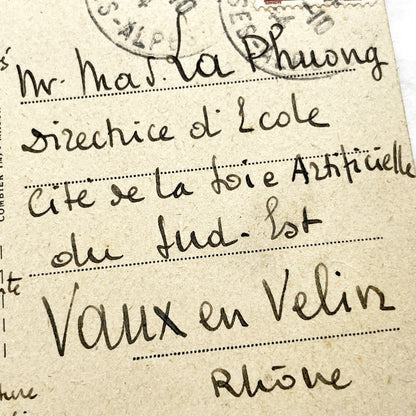 Mr. Mad. La Phuong
Directrice d'Ecole
Cité de la Soie Artificielle
du Sud-Est
Vaux en Velin
Rhône